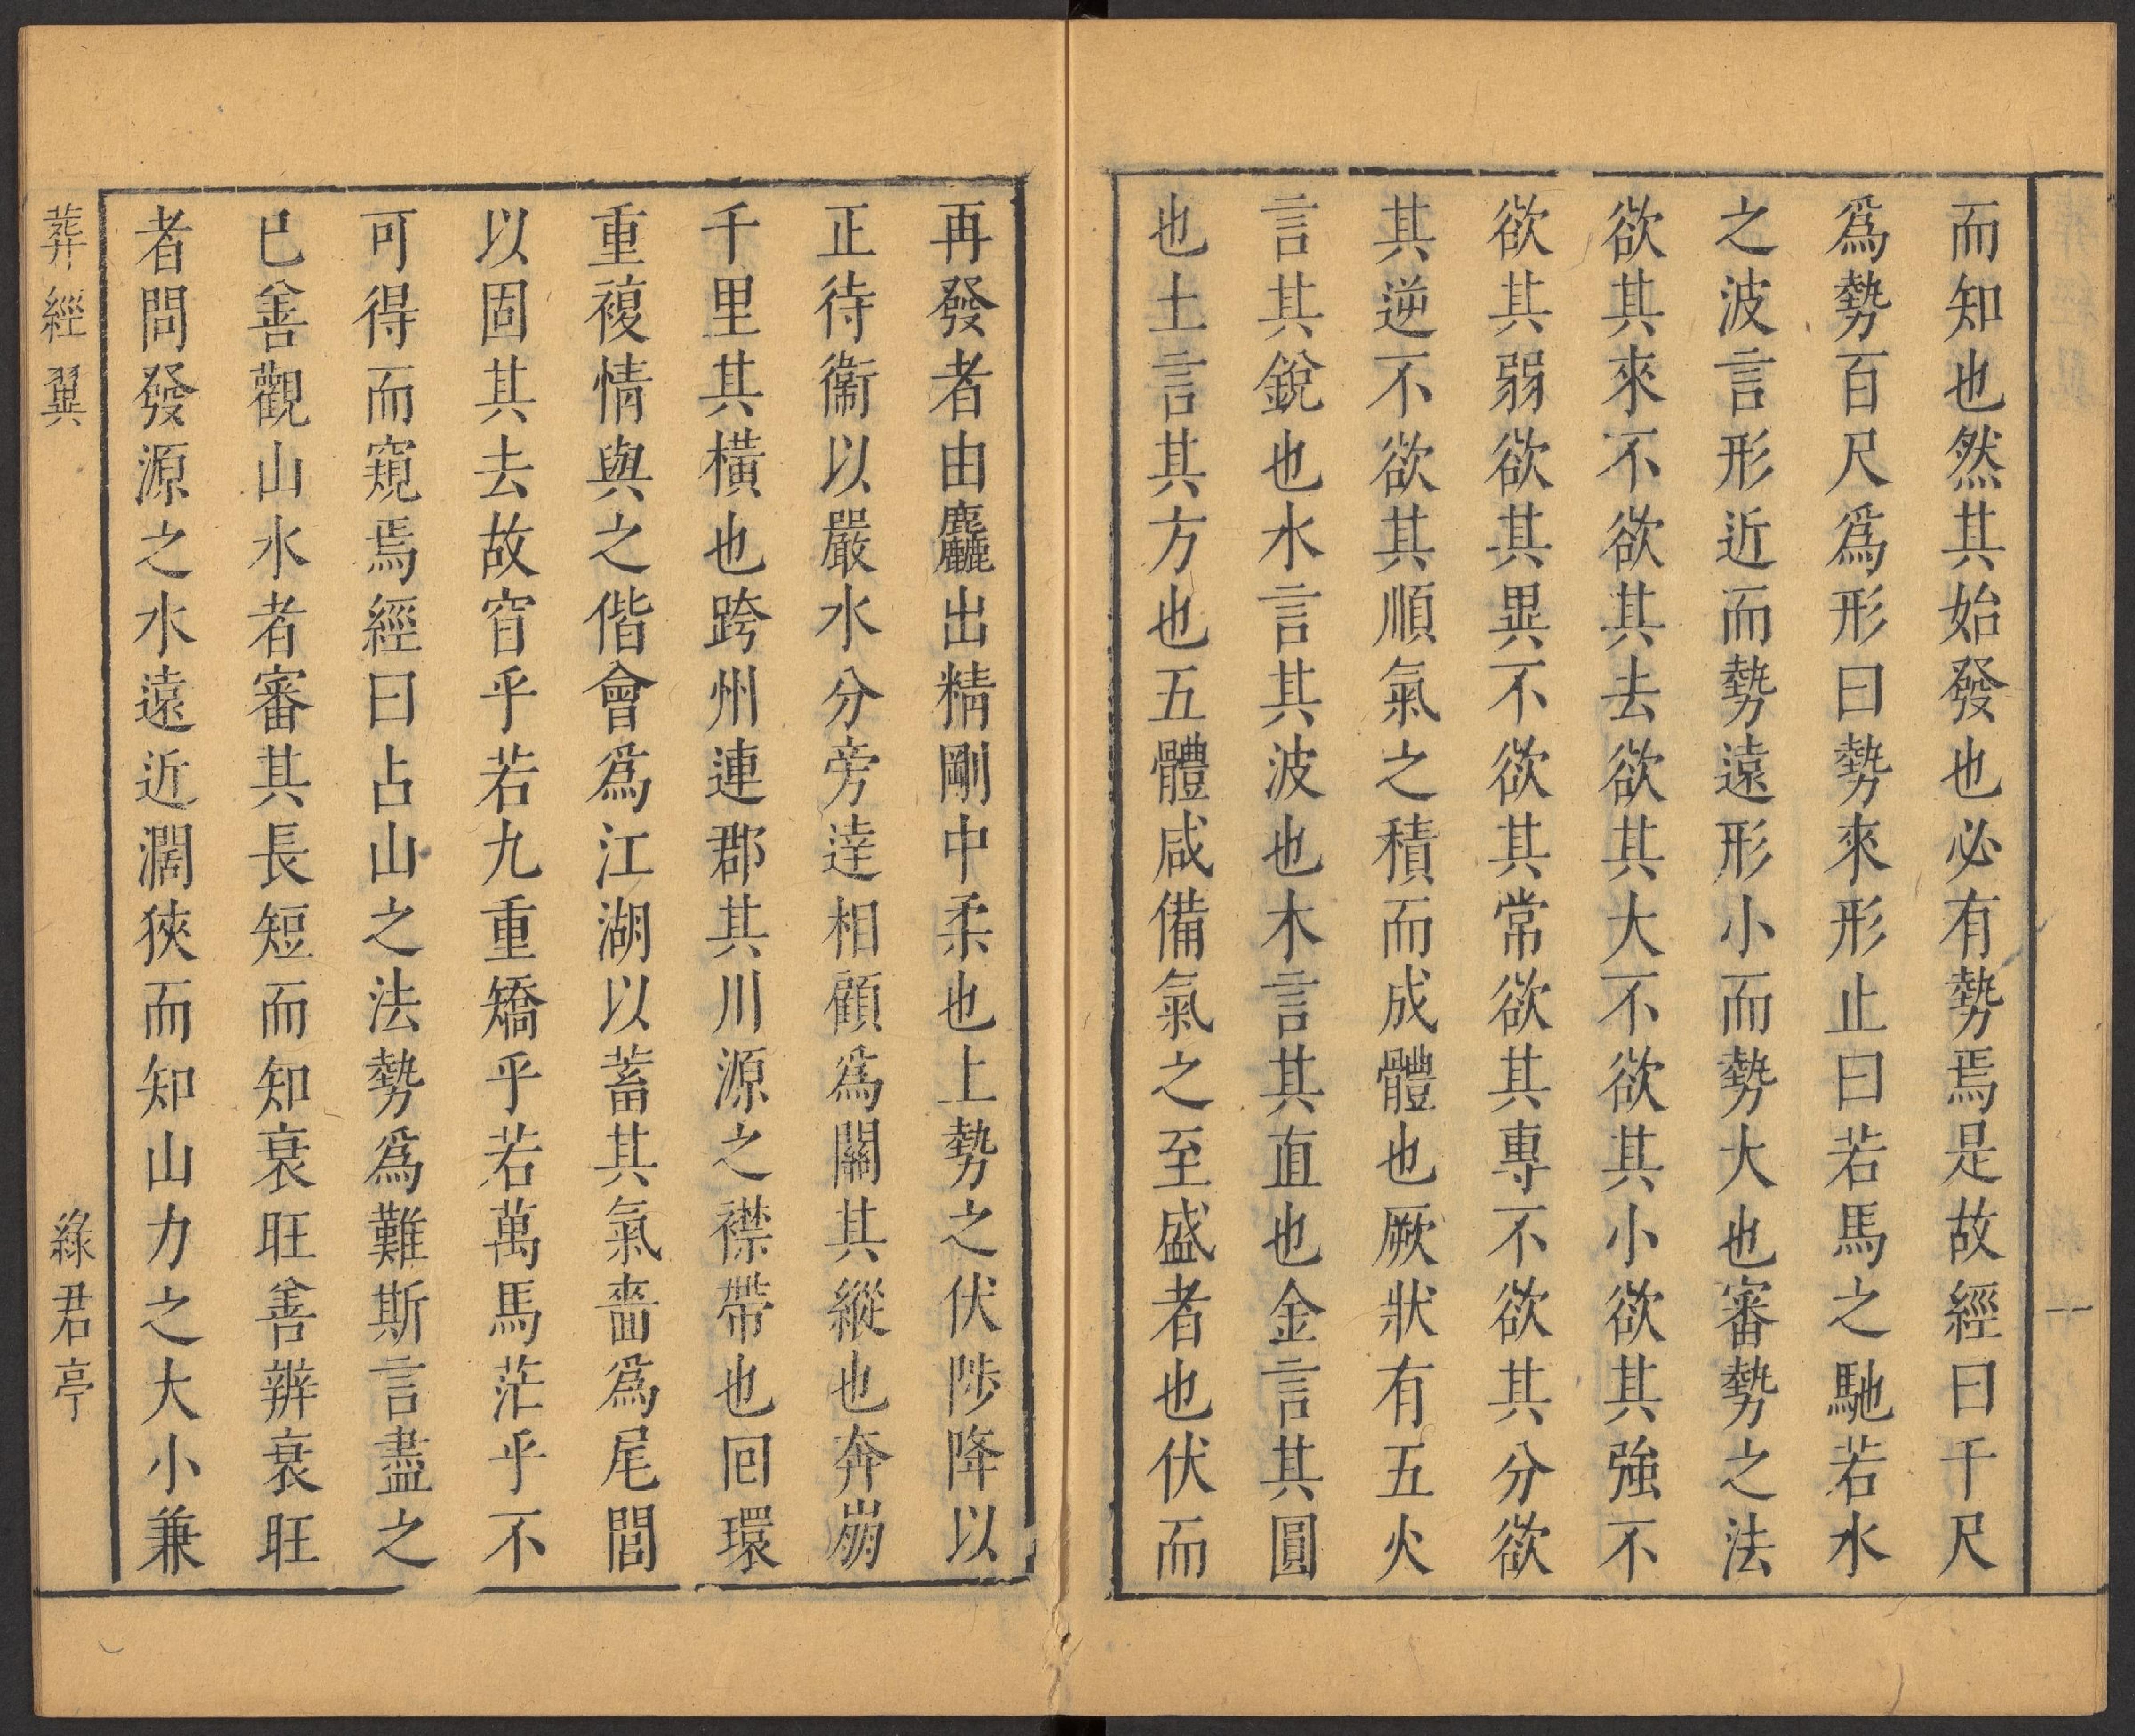 而知也然其始發也必有勢焉是故經曰千尺
爲勢百尺爲形曰勢來形止曰若馬之馳若水
之波言形近而勢遠形小而勢大也審勢之法
欲其來不欲其去欲其大不欲其小欲其強不
欲其弱欲其異不欲其常欲其專不欲其分欲
其逆不欲其順氣之積而成體也厥狀有五火
言其銳也水言其波也木言其直也金言其圓
也土言其方也五體咸備氣之至盛者也伏而
再發者由麤出精剛中柔也上勢之伏陟降以
正待衞以嚴水分旁達相顧爲關其縱也奔崩
千里其橫也跨州連郡其川源之襟帶也囘環
重複情與之偕會爲江湖以蓄其氣嗇爲尾閭
以固其去故窅乎若九重矯乎若萬馬茫乎不
可得而窺焉經曰占山之法勢爲難斯言盡之
已善觀山水者審其長短而知衰旺善辨衰旺
者問發源之水遠近濶狹而知山力之大小兼
葬經翼
綠君亭